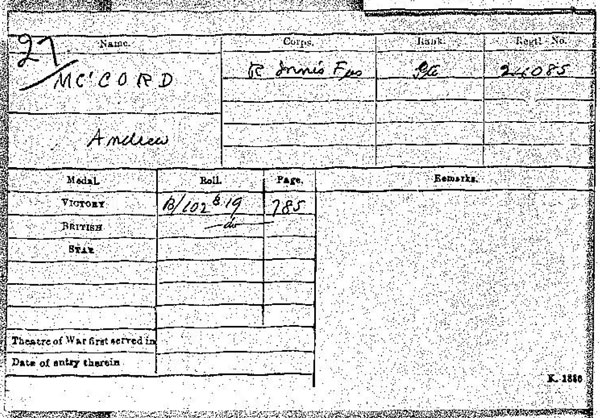 27
Name. Corps. Rank. Regtl. No.
McCORD R Innis Fus Pte 24085
Andrew
Medal. Roll. Page. Remarks.
VICTORY B/102 B 19 785
BRITISH —do—
STAR
Theatre of War first served in
Date of entry therein
K. 1380